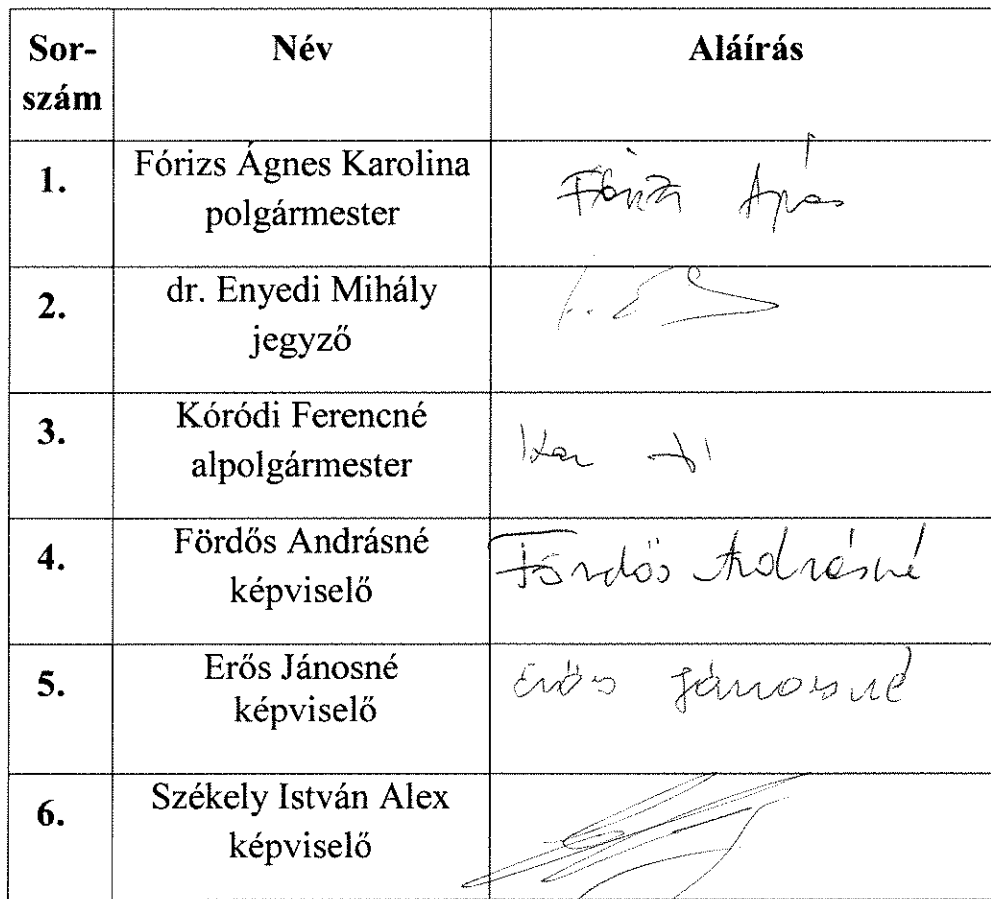 Sor-
szám
Név
Aláírás
1.
Fórizs Ágnes Karolina
polgármester
2.
dr. Enyedi Mihály
jegyző
3.
Kóródi Ferencné
alpolgármester
4.
Fördős Andrásné
képviselő
Fördős Andrásné
5.
Erős Jánosné
képviselő
Erős Jánosné
6.
Székely István Alex
képviselő